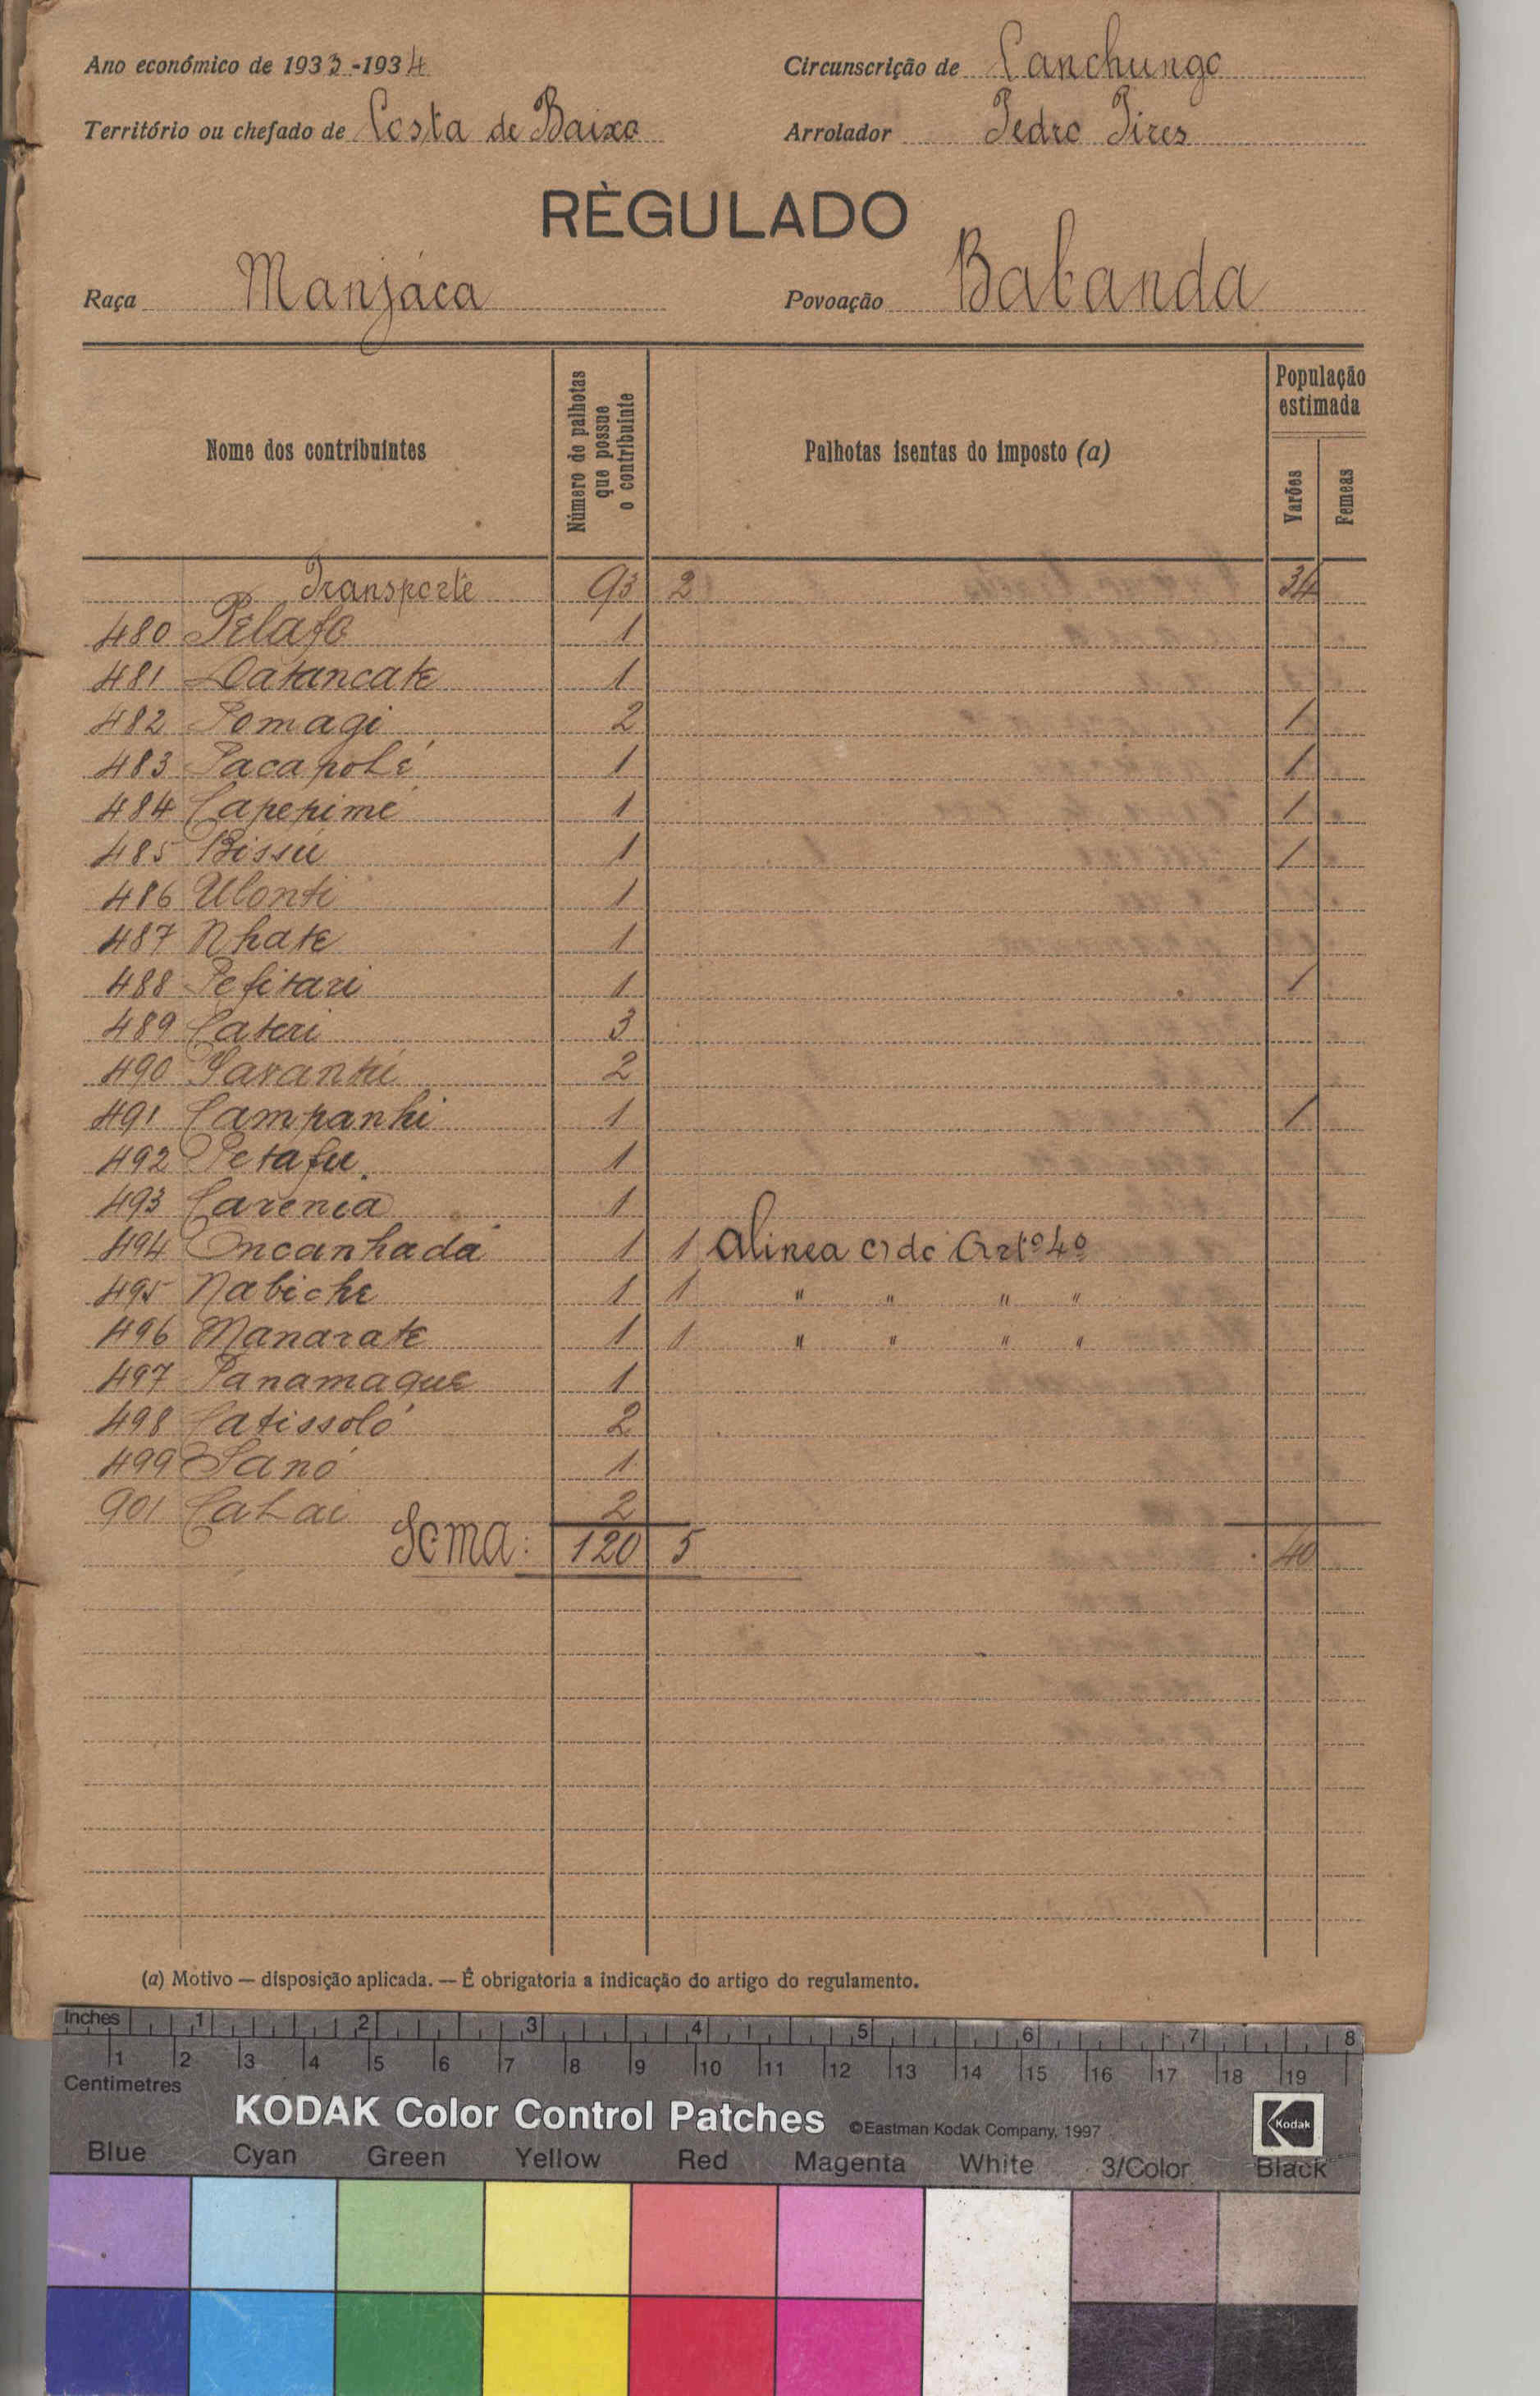 Ano económico de 1933-1934 Circunscrição de Canchungo
Território ou chefado de Costa de Baixo Arrolador Pedro Pires
RÈGULADO
Raça Manjáca Povoação Babanda
Nome dos contribuintes Número de palhotas que possue o contribuinte Palhotas isentas do imposto (a) População estimada Varões Femeas
Transporte 93 2 34
480 Pelafo 1
481 Datancate 1
482 Pomagi 2 1
483 Pacapolé 1 1
484 Capepimé 1 1
485 Bissú 1 1
486 Ulonti 1
487 Nhate 1
488 Pefitari 1 1
489 Cateri 3
490 2
491 Campanhi 1 1
492 Petafu 1
493 Carenca 1
494 Encanhadá 1 1 Alinea c) do Artº 4º
495 Nabiche 1 1 " " " "
496 Manarate 1 1 " " " "
497 Panamaque 1
498 Catissoló 2
499 Sanó 1
901 Calai 2
Soma: 120 5 40
(a) Motivo — disposição aplicada. — É obrigatoria a indicação do artigo do regulamento.
Inches 1 2 3 4 5 6 7 8
1 2 3 4 5 6 7 8 9 10 11 12 13 14 15 16 17 18 19
Centimetres
KODAK Color Control Patches ©Eastman Kodak Company, 1997 Kodak
Blue Cyan Green Yellow Red Magenta White 3/Color Black